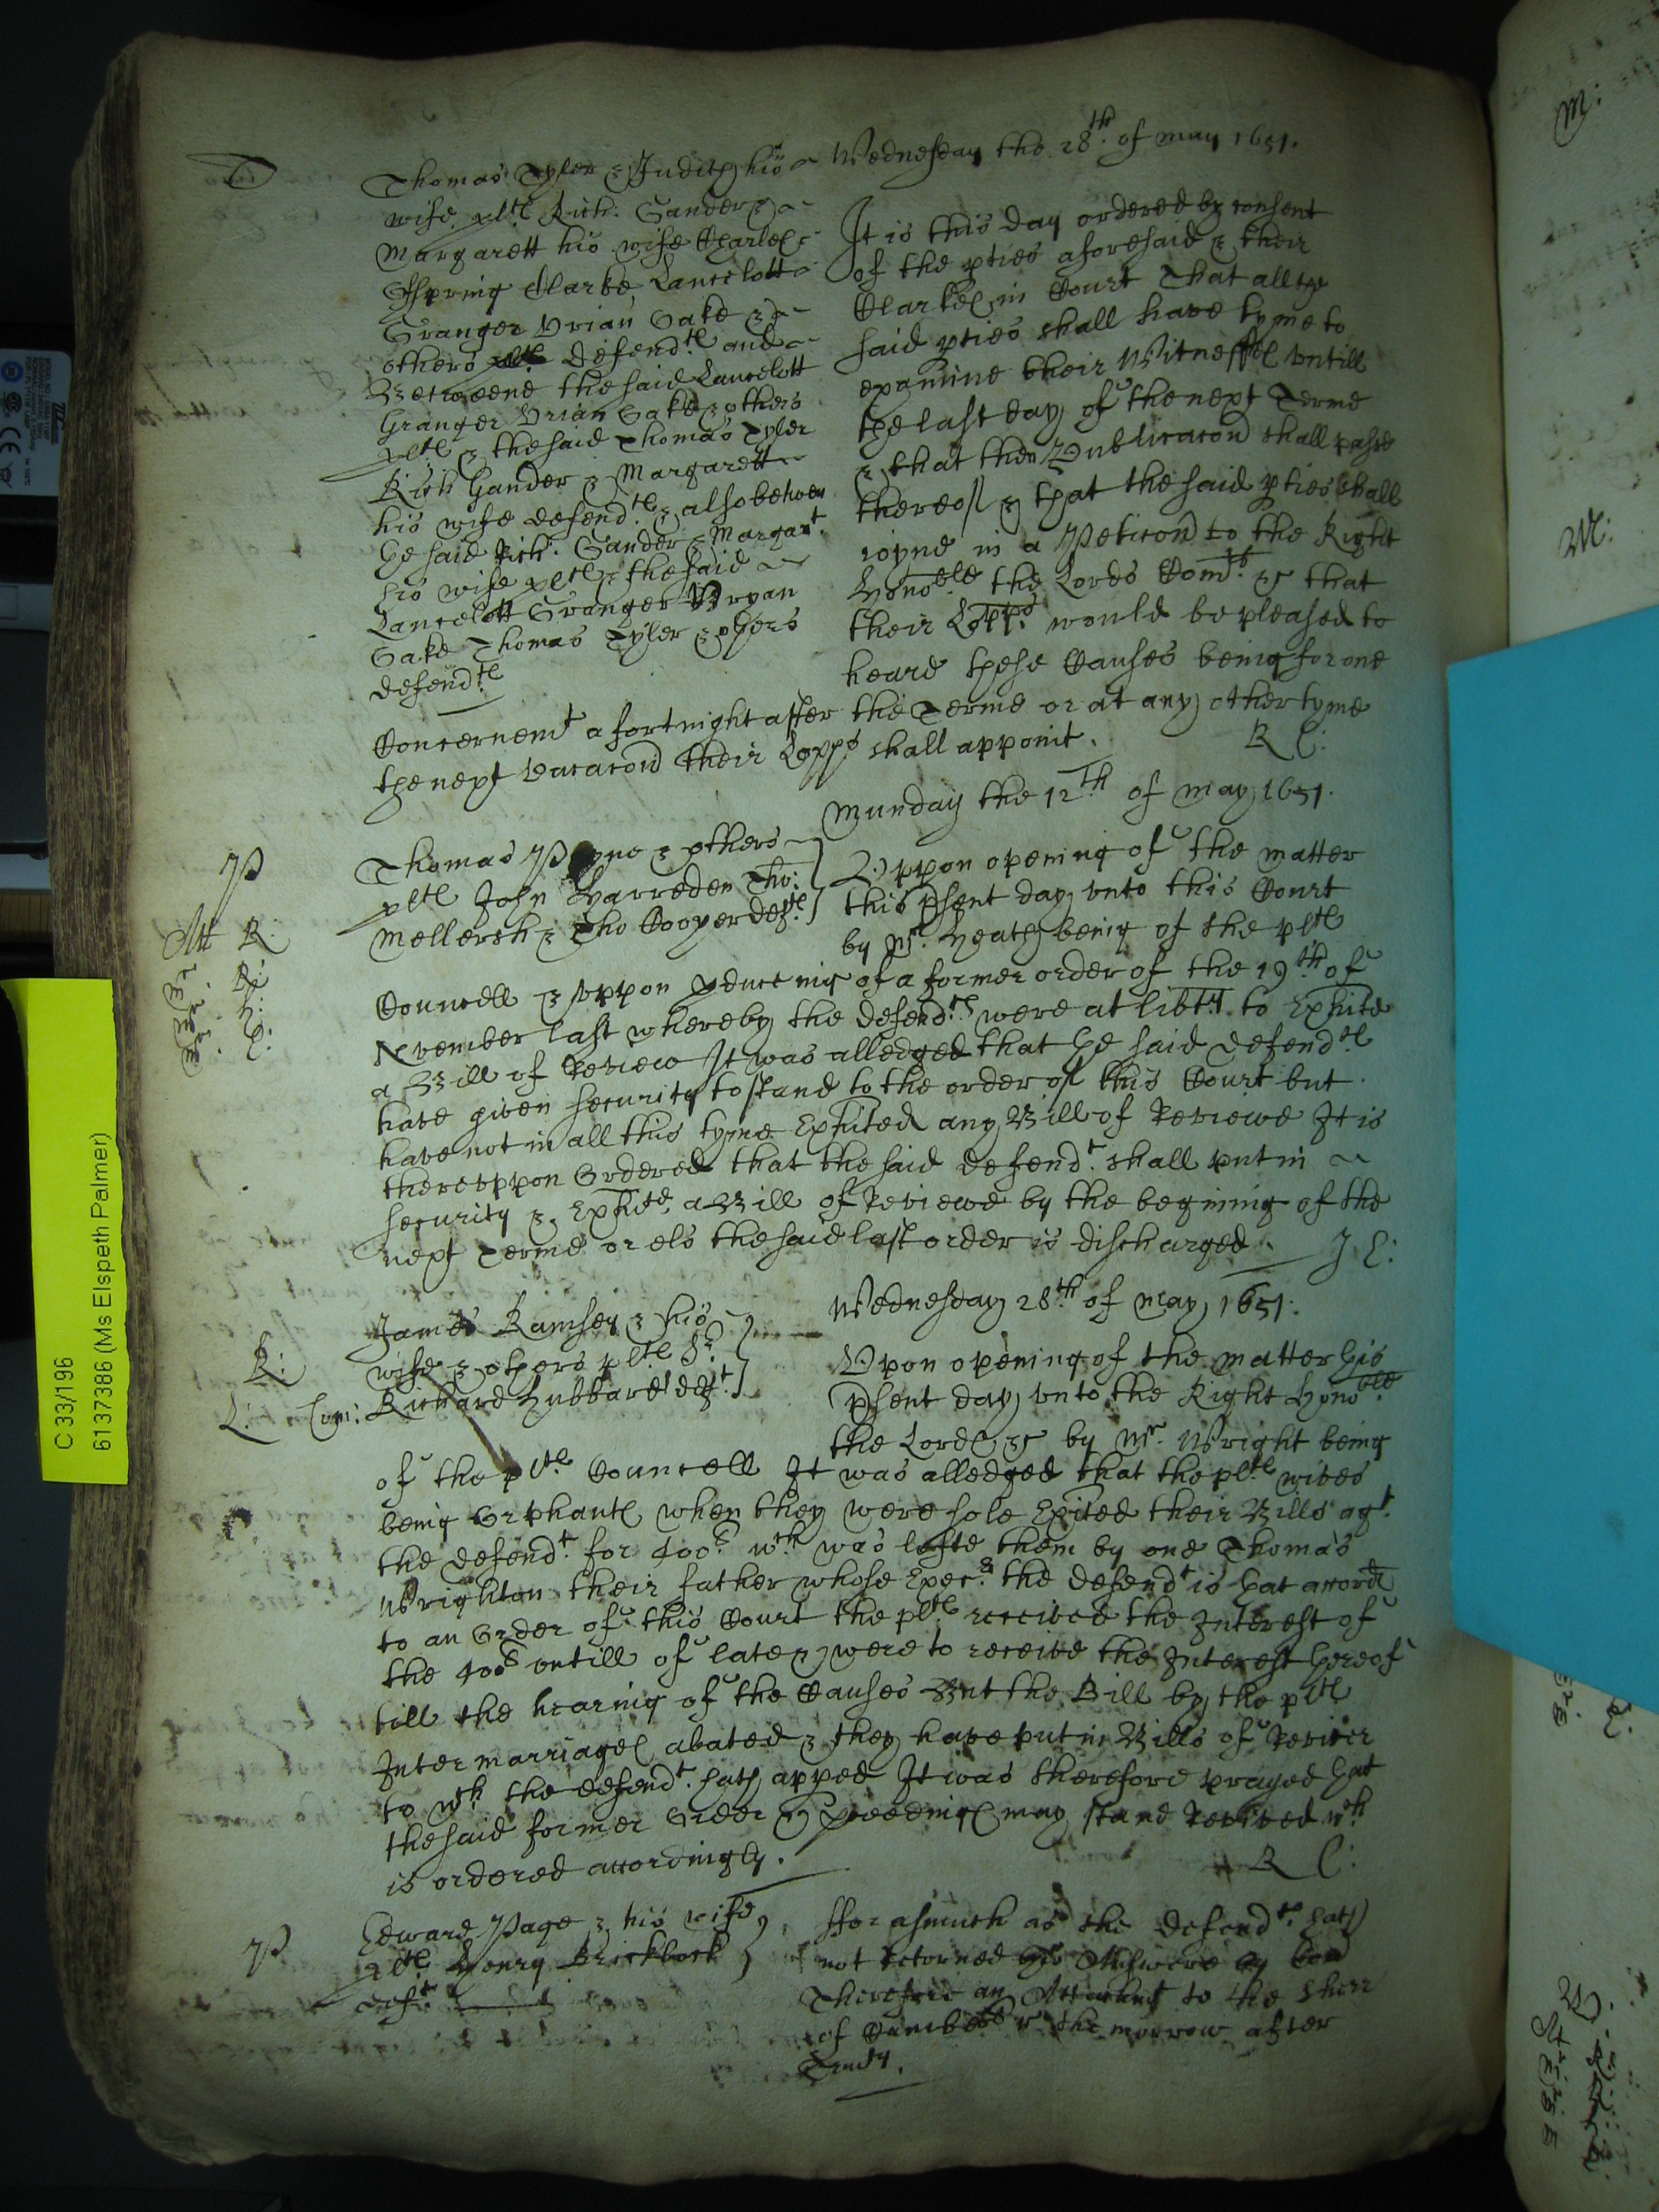 T
Thomas Tyler & Judith his
wife pltes Rich: Gander &
Margarett his wife Charles
Ofspring Clarke Lancelott
Granger Brian Gake &
others defendtes and
Betweene the said Lancelott
Granger Brian Gake & others
pltes & the said Thomas Tyler
Rich Gander & Margarett
his wife defendtes & also betwen
the said Rich: Gander & Margart
his wife pltes & the said
Lancelott Granger Bryan
Gake Thomas Tyler & others
defendtes
Wednesday the 28th. of may 1651.
It is this day ordered by consent
of the pties aforesaid & their
Clarkes in Court That all the
said pties shall have tyme to
examine their Witnesses untill
the last day of the next Terme
& that then Publicacon shall passe
thereof & that the said pties shall
ioyne in a Peticon to the Right
Honoble the Lords Comrs &c that
their Lopps would be pleased to
heare these Causes being for one
Concernemt a fortnight after the Terme or at any other tyme
the next vacacon their Lopps shall appoint. R C:
Munday the 12th of may 1651.
P
Thomas Payne & others
pltes John Harreden Tho:
Mellersh & Tho Cooper deftes
Att R:
R:
H:
C:
Vppon opening of the matter
this psent day vnto this Court
by Mr. Heath being of the pltes
Councell & vppon pduceing of a former order of the 19th of
November last whereby the defendtes were at libty to Exhite
a Bill of Review It was alledged that the said defendtes
have given security to stand to the order of this Court but
have not in all this tyme Exhited any Bill of Reviewe It is
therevppon Ordered that the said defendt. shall put in
security & Exhite a Bill of Reviewe by the begining of the
next Terme or els the said last order is discharged. J C:
Wednesday 28th of may 1651:
R:
L: Com:
James Ramsey & his
wife & others pltes Sr.
Richard Hubbard deft
Vpon opening of the matter this
psent day vnto the Right Honoble
the Lords &c by Mr. Wright being
of the pltes Councell It was alledged that the pltes wives
being Orphants when they were sole Exited their Bills agt.
the defendt. for 400l wch was lefte them by one Thomas
Wrighton their father whose Execr the defendt is that accord
to an Order of this Court the pltes received the Interest of
the 400l vntill of late & were to receive the Interest thereof
till the hearing of the Causes But the Bill by the pltes
Intermarriages abated & they have put in Bills of Reviver
to wch the defendt. hath apped It was therefore prayed that
the said former Order & pceedings may stand Revived wch
is ordered accordingly. R C:
P
Edward Page & his wife
pltes Henry Brickbock
deft
fforasmuch as the defendte. hath
not retorned his Answere by Com
Therefore an Attachmt to the Sherr
of the morrow after
Trinity.
C 33/196
61373786 (Ms Elspeth Palmer)
M:
M: